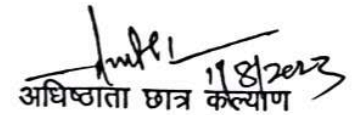 1/8/2023
अधिष्ठाता छात्र कल्याण